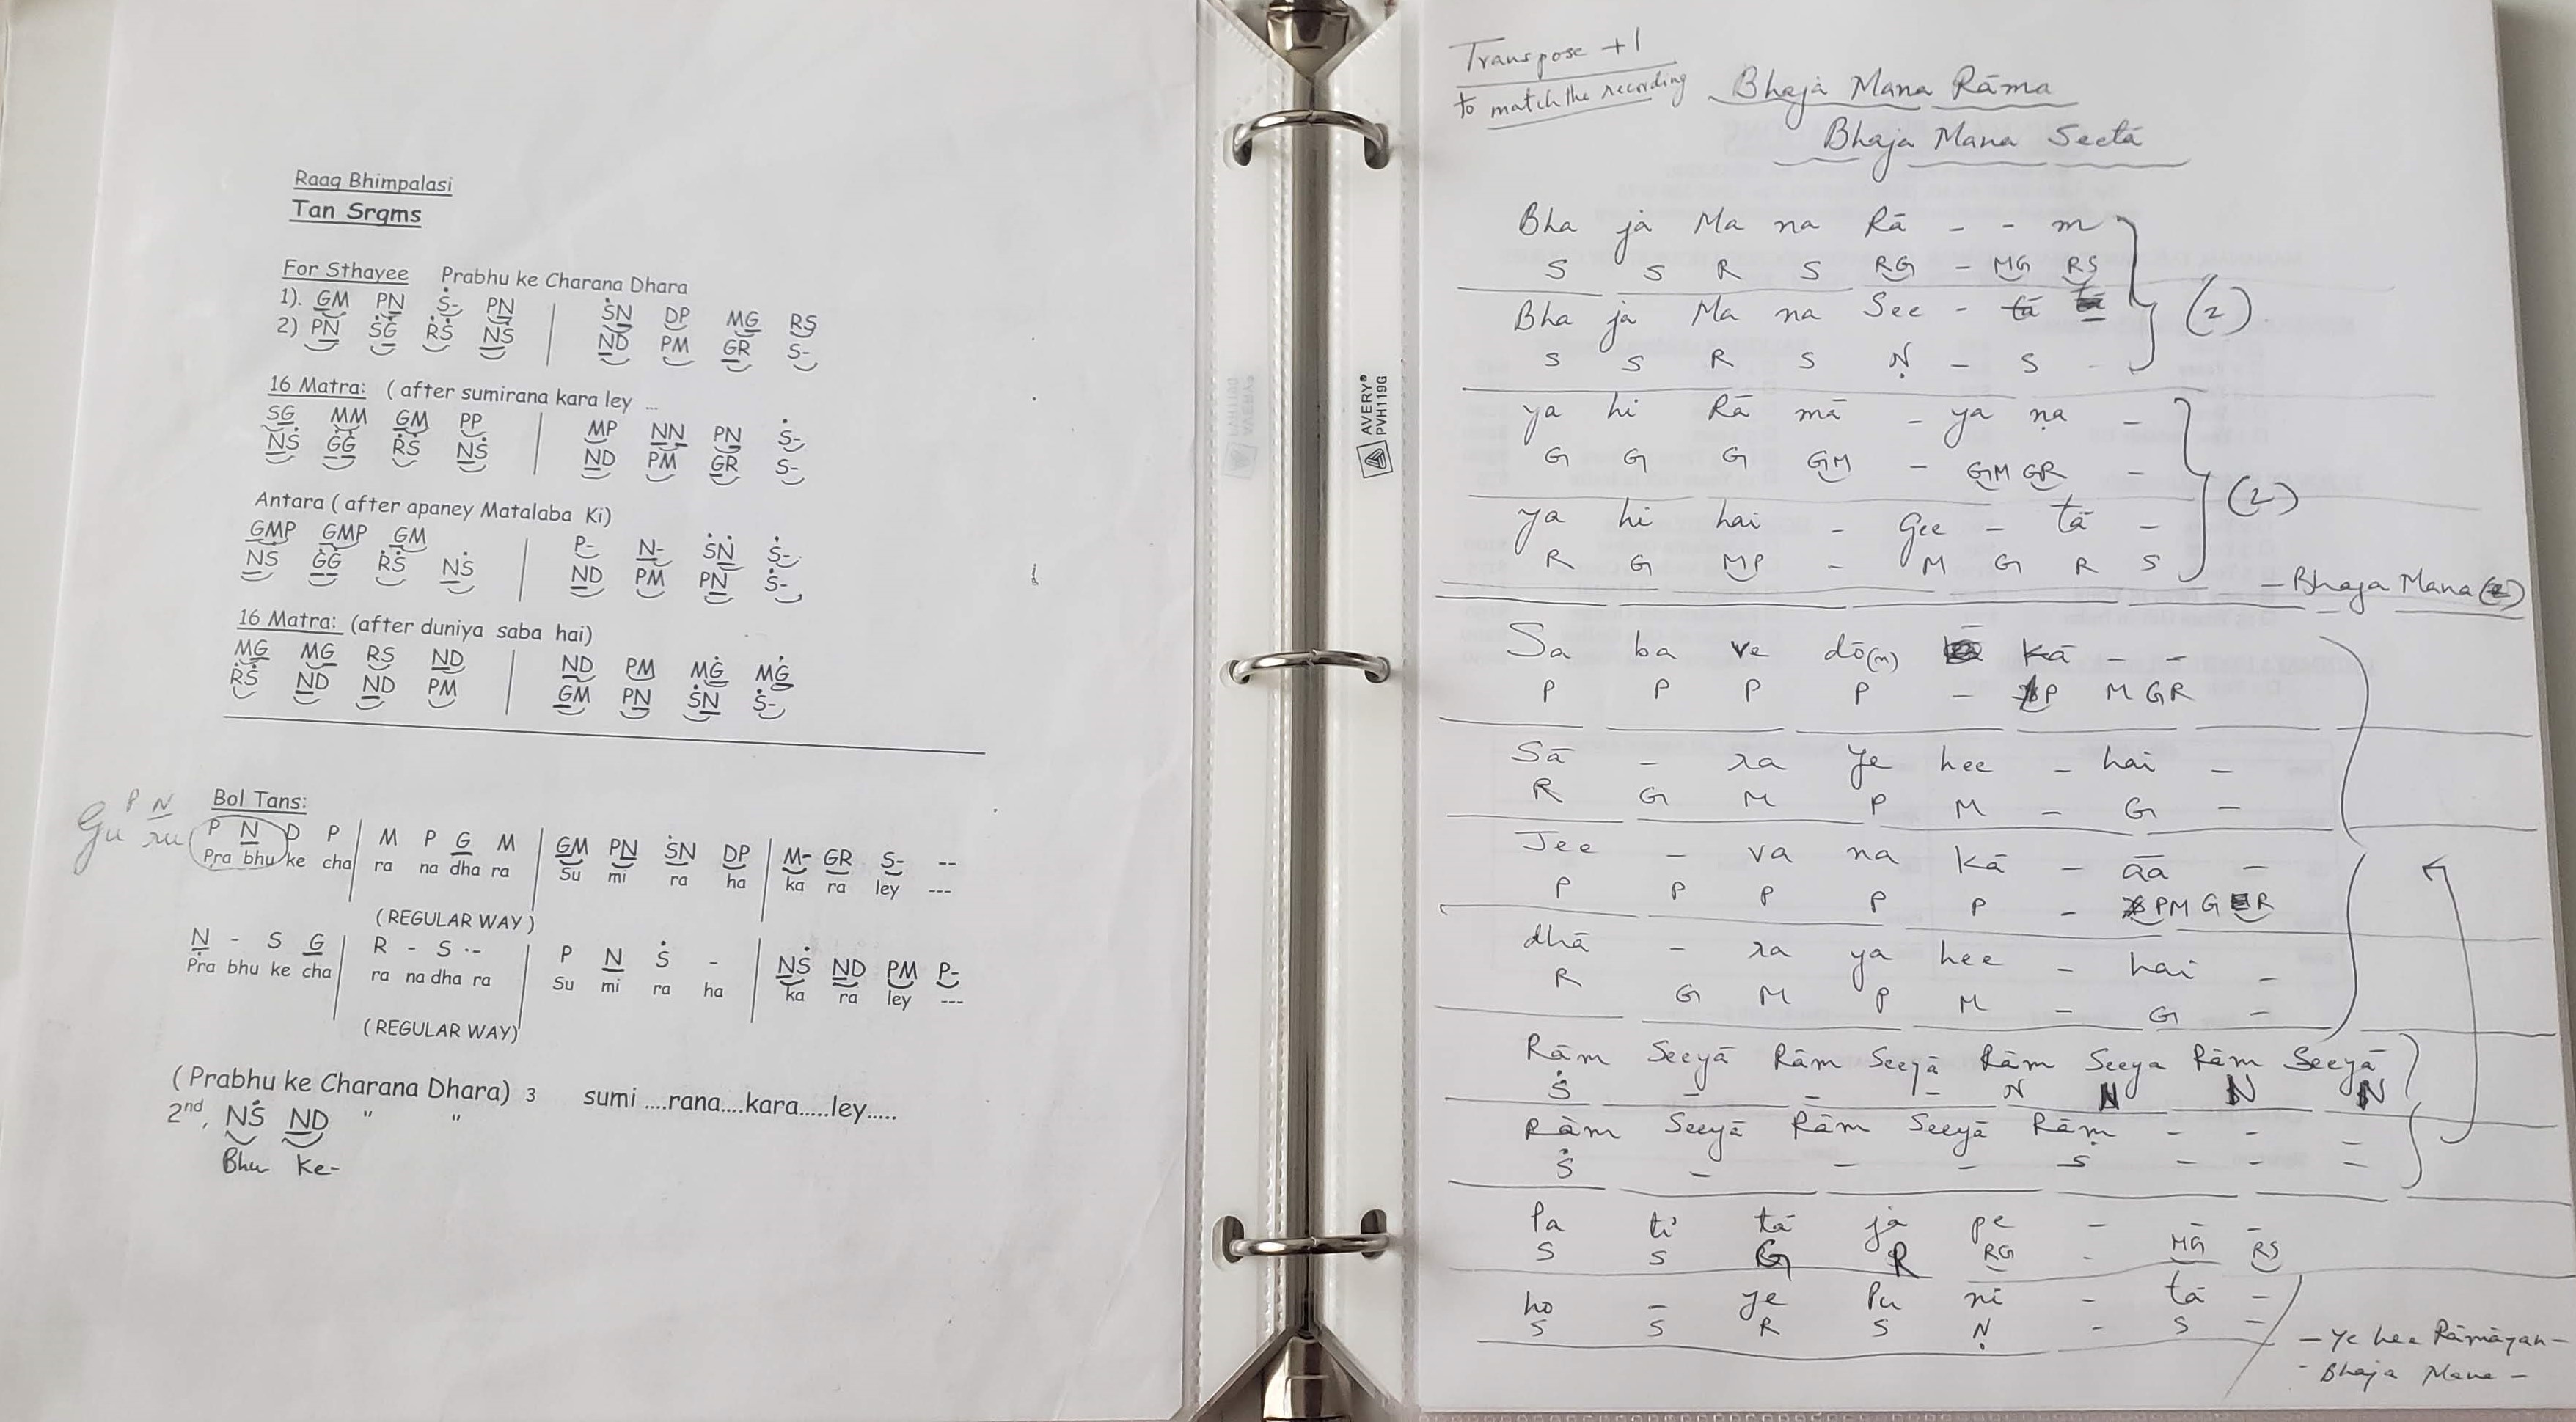 Raag Bhimpalasi
Tan Srgms
For Sthayee Prabhu ke Charana Dhara
1). GM PN Ṡ- PN | ṠN DP MG RS
2) PN ṠG ṘṠ NṠ | ND PM GR S-
16 Matra: ( after sumirana kara ley ...
SG MM GM PP | MP NN PN Ṡ-
NṠ ĠĠ ṘṠ NṠ | ND PM GR S-
Antara ( after apaney Matalaba Ki)
GMP GMP GM | P- N- ṠN Ṡ-
NṠ ĠĠ ṘṠ NṠ | ND PM PN Ṡ-
16 Matra: (after duniya saba hai)
MG MG RS ND | ND PM MG MG
ṘṠ ND ND PM | GM PN ṠN Ṡ-
Bol Tans:
P N
Gu ru
P N D P | M P G M | GM PN ṠN DP | M- GR S- --
Pra bhu ke cha ra na dha ra Su mi ra ha ka ra ley ---
(REGULAR WAY)
Ṇ - S G | R - S -- | P N Ṡ - | NṠ ND PM P-
Pra bhu ke cha ra na dha ra Su mi ra ha ka ra ley ---
(REGULAR WAY)
( Prabhu ke Charana Dhara) 3 sumi ....rana....kara.....ley.....
2nd, NṠ ND " "
Bhu Ke-
AVERY®
PVH119G
Transpose +1
to match the recording
Bhaja Mana Rāma
Bhaja Mana Seetā
Bha ja Ma na Rā - - m
S S R S RG - MG RS
(2)
Bha ja Ma na See - tā
S S R S Ṇ - S -
ya hi Rā mā - ya na -
G G G GM - GM GR -
(2)
ya hi hai - Gee - tā -
R G MP - M G R S
- Bhaja Mana (2)
Sa ba ve dō(n) Kā - -
P P P P - P M GR
Sā - ra ye hee - hai -
R G M P M - G -
Jee - va na kā - āa -
P P P P P - PM G R
dhā - ra ya hee - hai -
R G M P M - G -
Rām Seeyā Rām Seeyā Rām Seeya Rām Seeyā
Ṡ - - - N N N N
Rām Seeyā Rām Seeyā Rām - - -
Ṡ - - - S - - -
Pa ti tā ja pe - - -
S S G R RG - MG RS
ho - ye Pu ni - tā -
S S R S Ṇ - S -
- Ye hee Rāmāyan -
- Bhaja Mana -